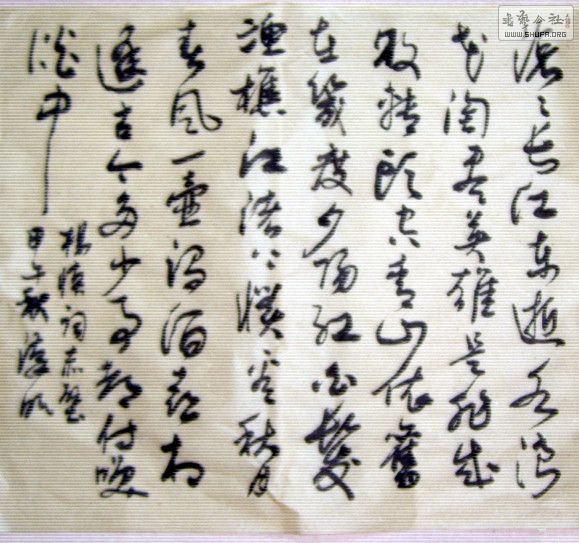 滚〻长江东逝水浪
花淘尽英雄是非成
败转头空青山依舊
在幾度夕阳红白髮
漁樵江渚上惯看秋月
春风一壶浊酒喜相
逢古今多少事都付咲
谈中
杨慎词赤壁
甲午秋
书艺公社
WWW.SHUFA.ORG